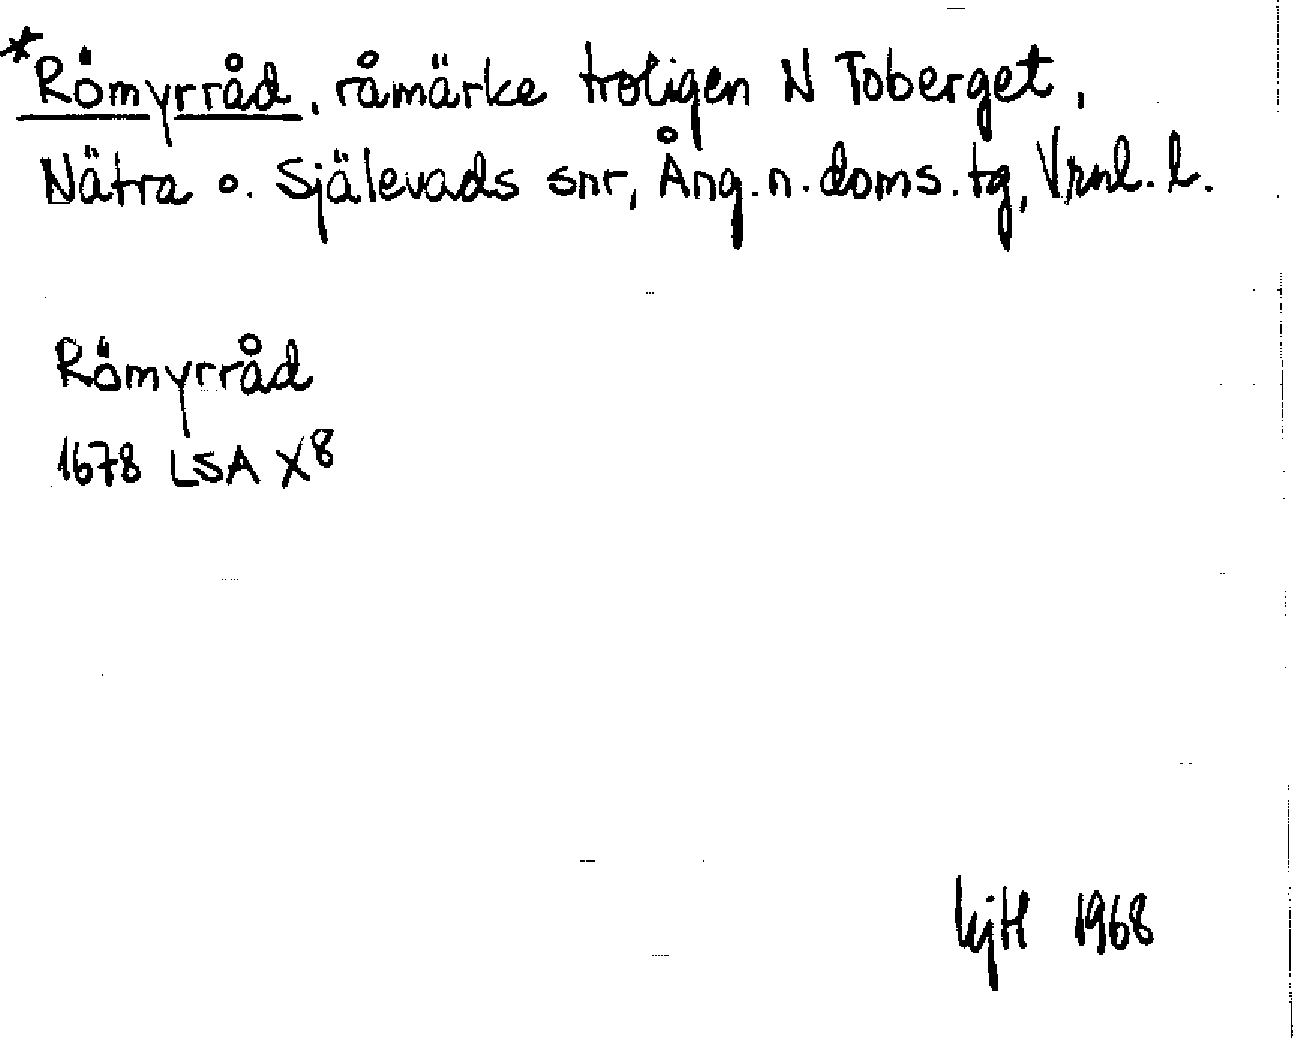 *Römyrråd, råmärke troligen N Toberget,
Nätra o. Själevads snr, Ång. n. doms. tg, Vrnl. l.
Römyrråd
1678 LSA X8
1968